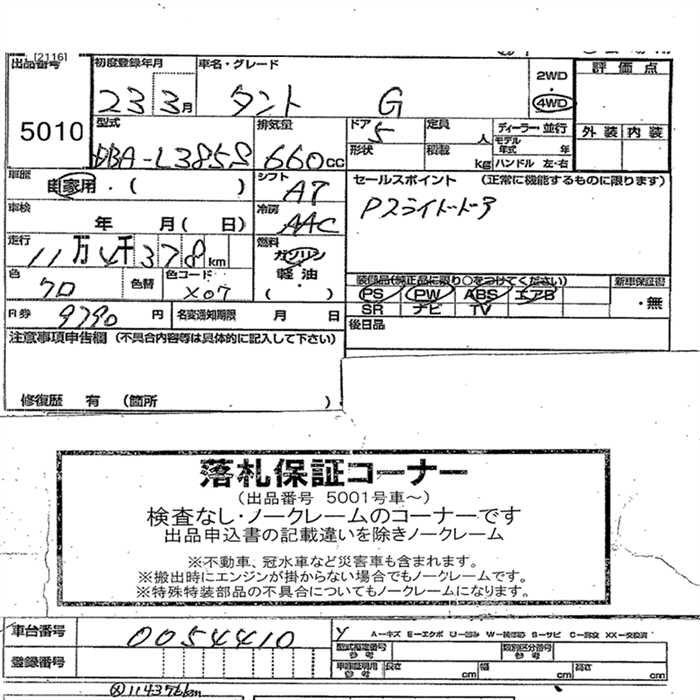 [2116]
出品番号 初度登録年月 車名・グレード 2WD・4WD 評価点
5010 23年 3月 タント G
型式 排気量 ドア 定員 人 ディーラー・並行 外装 内装
DBA-L385S 660cc 5 形状 積載 kg モデル年式 年 ハンドル 左・右
車歴 自家用・( ) シフト AT セールスポイント (正常に機能するものに限ります)
車検 年 月( 日) 冷房 AAC Pスライドドア
走行 11万4千378km 燃料 ガソリン・軽油・( )
色 クロ 色替 色コード X07 装備品(純正品に限り○をつけてください) 新車保証書
PS PW ABS エアB ・無
R券 9790円 名変通知期限 月 日 SR ナビ TV
注意事項申告欄 (不具合内容等は具体的に記入して下さい) 後日品
修復歴 有 (箇所 )
落札保証コーナー
(出品番号 5001号車～)
検査なし・ノークレームのコーナーです
出品申込書の記載違いを除きノークレーム
※不動車、冠水車など災害車も含まれます。
※搬出時にエンジンが掛からない場合でもノークレームです。
※特殊特装部品の不具合についてもノークレームになります。
車台番号 0054410 A-キズ E-エクボ U-凹み W-補修跡 S-サビ C-腐食 XX-交換済
登録番号 型式指定番号 参考 類別区分番号 参考
車庫証明用 参考 長さ cm 幅 cm 高さ cm
114376km